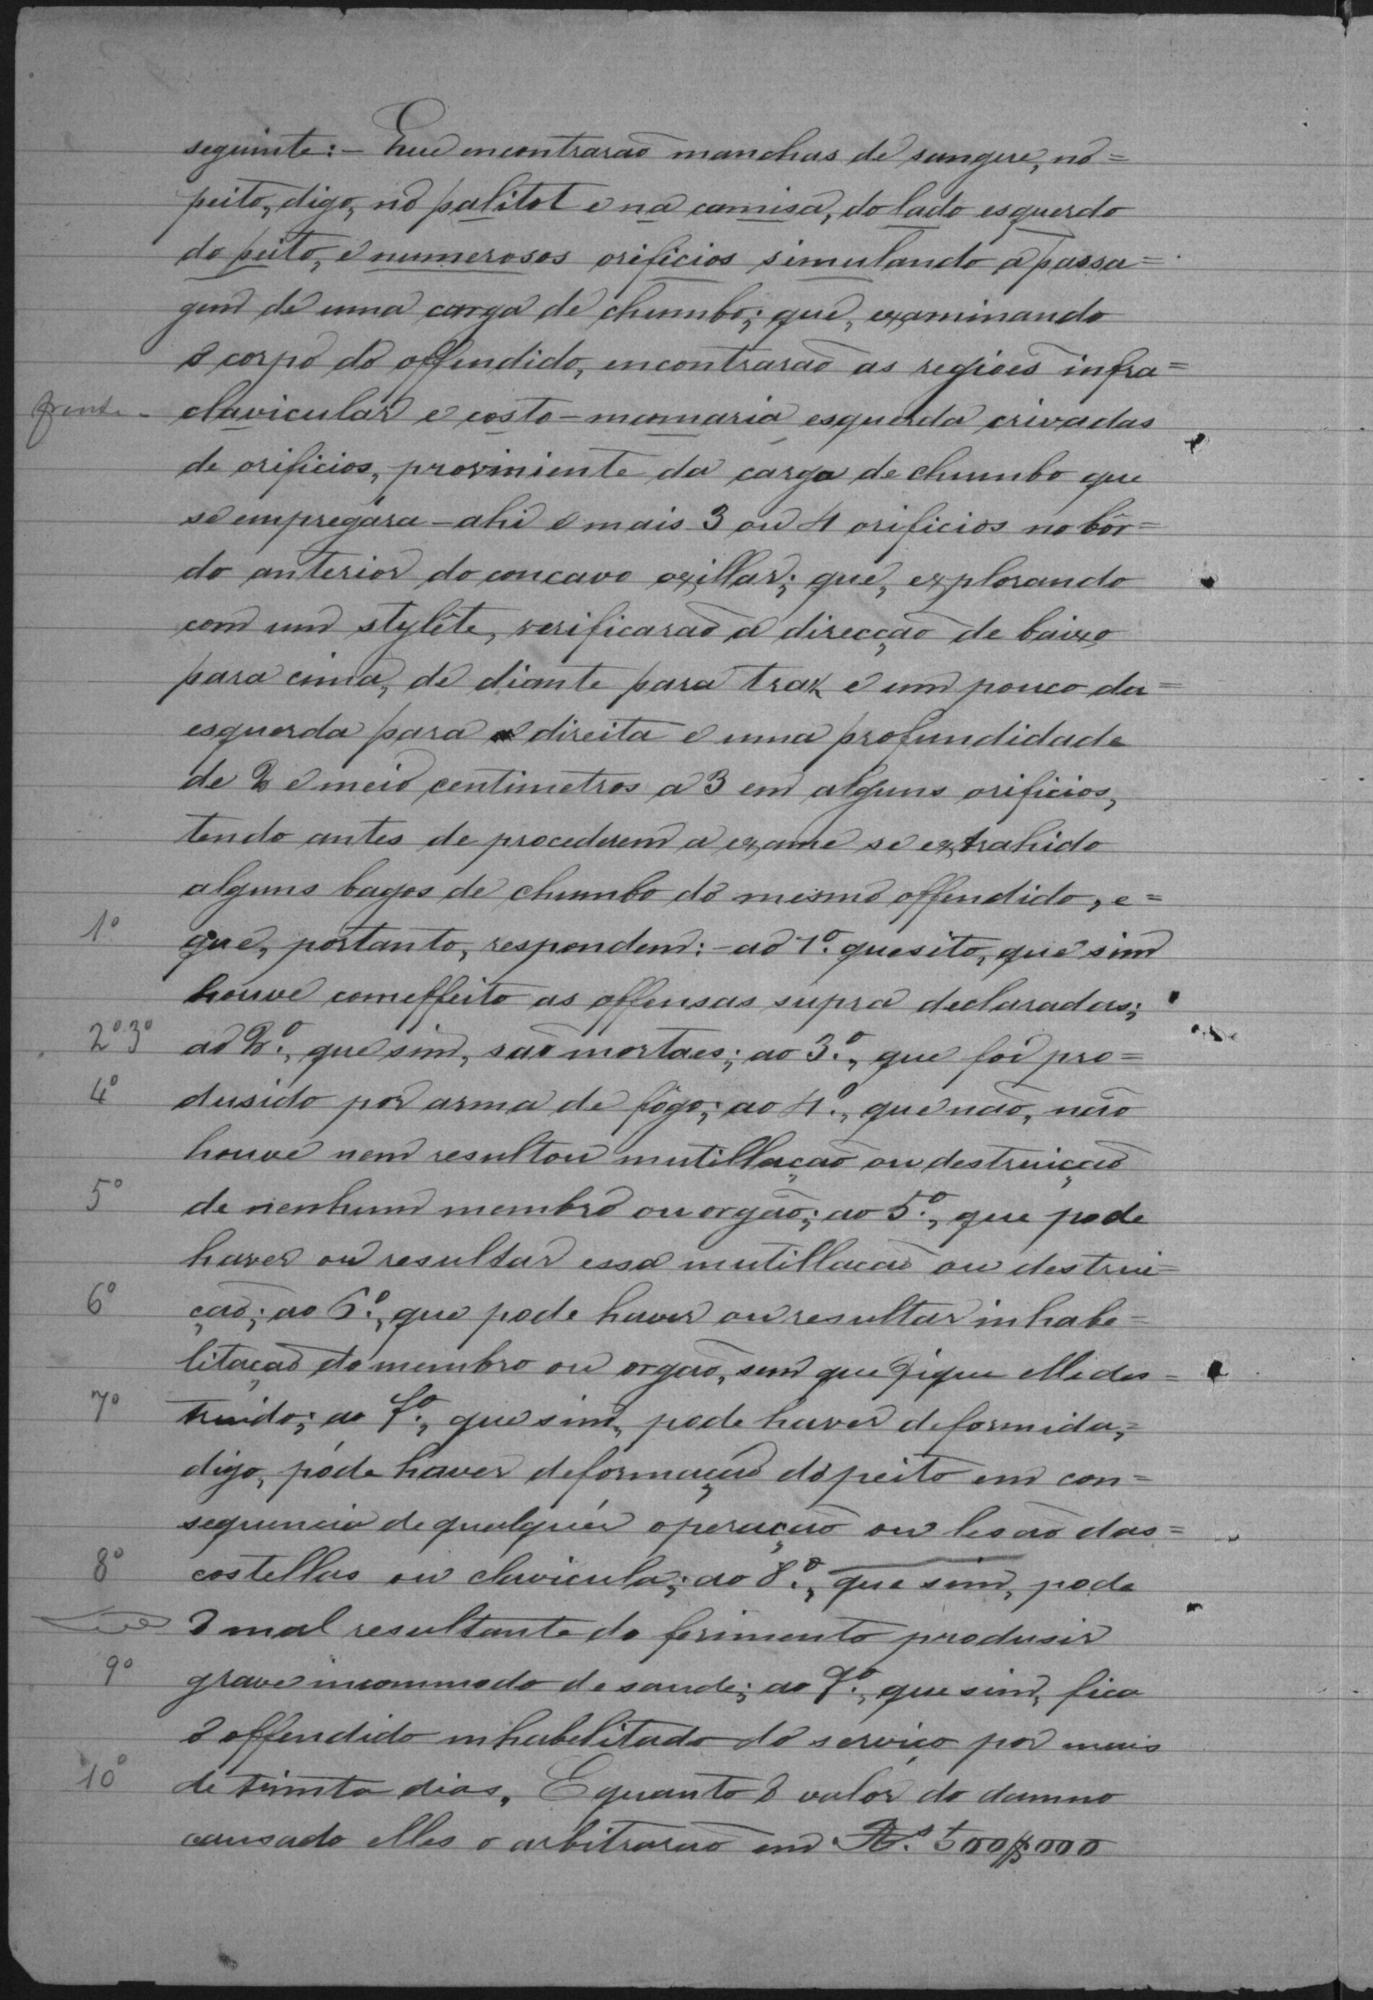 seguinte:- Que encontrarão manchas de sangue, no=
peito, digo, no palitot e na camisa, do lado esquerdo
do peito, e numerosos orificios simulando a passa=
gem de uma carga de chumbo; que, examinando
o corpo do offendido, encontrarão as regiões infra=
frente - clavicular e costo-mamaria esquerda crivadas
de orificios, proviniente da carga de chumbo que
se empregára - ahi e mais 3 ou 4 orificios no bor=
do anterior do concavo axillar; que, explorando
com um stylête, verificarão a direcção de baixo
para cima, de diante para traz e um pouco da=
esquerda para a direita e uma profundidade
de 2 e meio centimetros a 3 em alguns orificios,
tendo antes de procederem a exame se extrahido
alguns bagos de chumbo do mesmo offendido, e=
1º que, portanto, respondem: - ao 1º. quesito, que sim
houve comeffeito as offensas supra declaradas;
2º 3º ao 2º., que sim, são mortaes; ao 3º., que foi pro=
4º dusido por arma de fôgo; ao 4º., que não, não
houve nem resultou mutillação ou destruição
5º de nenhum membro ou orgão; ao 5º., que pode
haver ou resultar essa mutillacão ou destrui=
6º ção; ao 6º., que pode haver ou resultar inhabe=
litação do membro ou orgão, sem que fique elle des=
7º truido; ao 7º., que sim, pode haver deformida,=
digo, póde haver deformação do peito em con=
sequencia de qualquér operação ou lesão das=
8º costellas ou clavicula; ao 8º., que sim, pode
o mal resultante do ferimento produsir
9º grave incommodo de saude; ao 9º., que sim, fica
o offendido inhabelitado do serviço por mais
10º de trinta dias. E quanto o valor do damno
causado elles o arbitrarão em Rs. 500$000